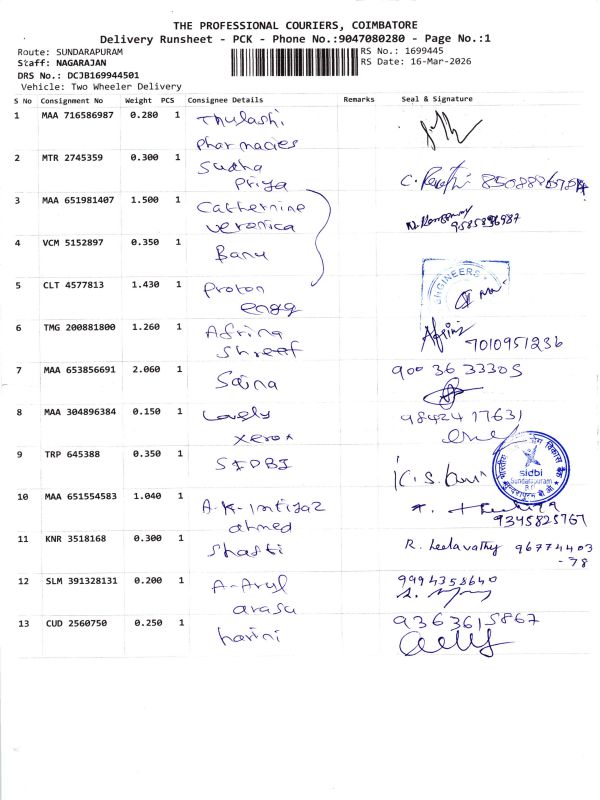 THE PROFESSIONAL COURIERS, COIMBATORE
Delivery Runsheet - PCK - Phone No.:9047080280 - Page No.:1
Route: SUNDARAPURAM
RS No.: 1699445
Staff: NAGARAJAN
RS Date: 16-Mar-2026
DRS No.: DCJB169944501
Vehicle: Two Wheeler Delivery
S No Consignment No Weight PCS Consignee Details Remarks Seal & Signature
1 MAA 716586987 0.280 1 Thulashi
Pharmacies
2 MTR 2745359 0.300 1 Sudha
Priya
3 MAA 651981407 1.500 1 Catherine
veronica
9585896987
4 VCM 5152897 0.350 1 Banu
5 CLT 4577813 1.430 1 Proton
engg
ENGINEERS
6 TMG 200881800 1.260 1 Afrina
Shreef
Afrin
7010951236
7 MAA 653856691 2.060 1 Saina
900 36 33305
8 MAA 304896384 0.150 1 Lovely
xerox
98424 17631
9 TRP 645388 0.350 1 SIDBI
sidbi
Sundarapuram
10 MAA 651554583 1.040 1 A.K. Imtiyaz
ahmed
9345825767
11 KNR 3518168 0.300 1 Shasti
R. Leelavathy 96774403
-78
12 SLM 391328131 0.200 1 A-Arul
arasu
9994358640
13 CUD 2560750 0.250 1 harini
9363615867